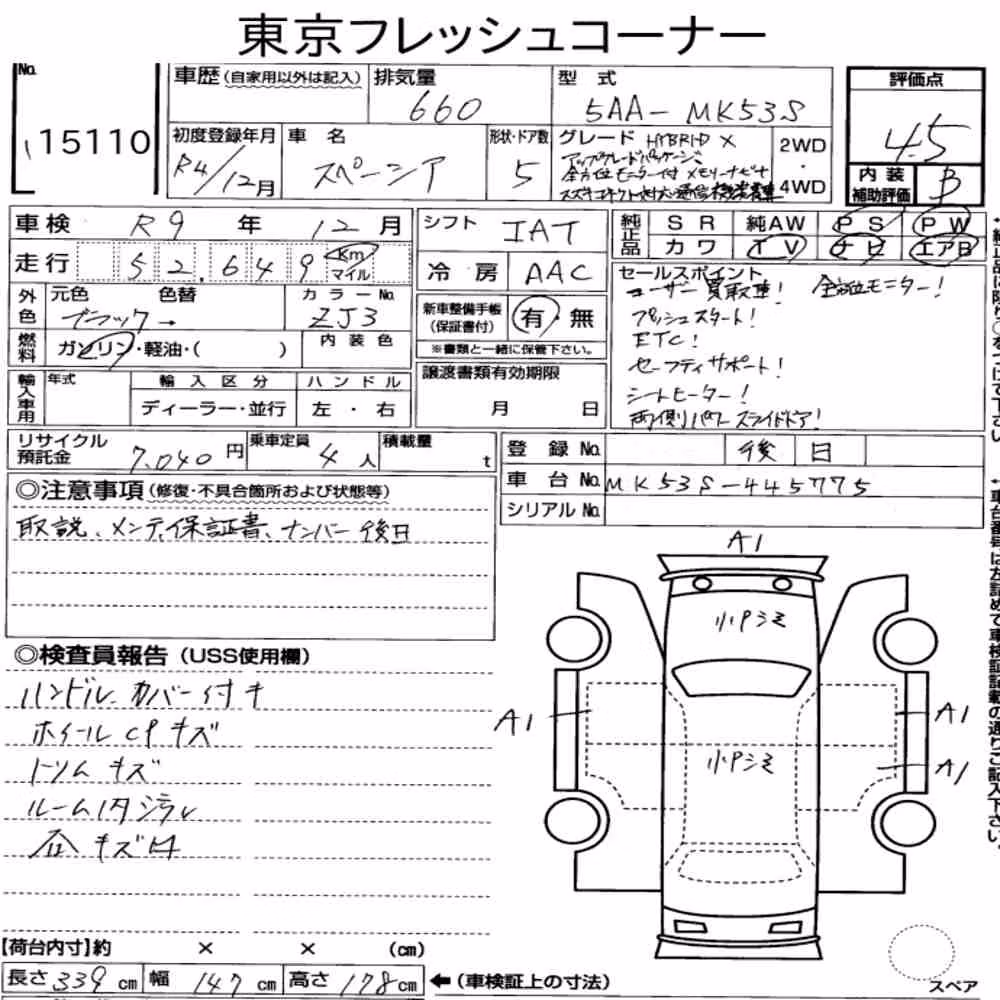 東京フレッシュコーナー
No.
15110
車歴(自家用以外は記入)
排気量
660
型 式
5AA-MK53S
評価点
4.5
初度登録年月
R4/12月
車 名
スペーシア
形状・ドア数
5
グレード HYBRID X
アップグレードパッケージ
全方位モニター付メモリーナビナ
スズキコネクト対応通信機装着車
2WD
・
4WD
内 装
補助評価
B
車検 R9 年 12 月
走行 52,649 Km
マイル
シフト IAT
冷 房 AAC
純正品
SR 純AW PS PW
カワ TV ナビ エアB
外色
元色 色替
ブラック→
カラーNo.
ZJ3
燃料
ガソリン・軽油・( )
内装色
新車整備手帳
(保証書付)
有・無
※書類と一緒に保管下さい。
セールスポイント
ユーザー買取車! 全方位モニター!
プッシュスタート!
ETC!
セーフティサポート!
シートヒーター!
両側パワースライドドア!
輸入車用
年式
輸入区分
ディーラー・並行
ハンドル
左・右
譲渡書類有効期限
月 日
リサイクル
預託金
7,040 円
乗車定員
4 人
積載量
t
登 録 No. 後 日
車 台 No. MK53S-445775
シリアル No.
◎注意事項(修復・不具合箇所および状態等)
取説、メンテ、保証書、ナンバー後日
◎検査員報告(USS使用欄)
ハンドルカバー付キ
ホイールCPキズ
トリムキズ
ルーム内
キズ
A1
小Pシミ
A1
A1
小Pシミ
A1
スペア
【荷台内寸】約 × × (cm)
長さ 339 cm 幅 147 cm 高さ 178 cm
←(車検証上の寸法)